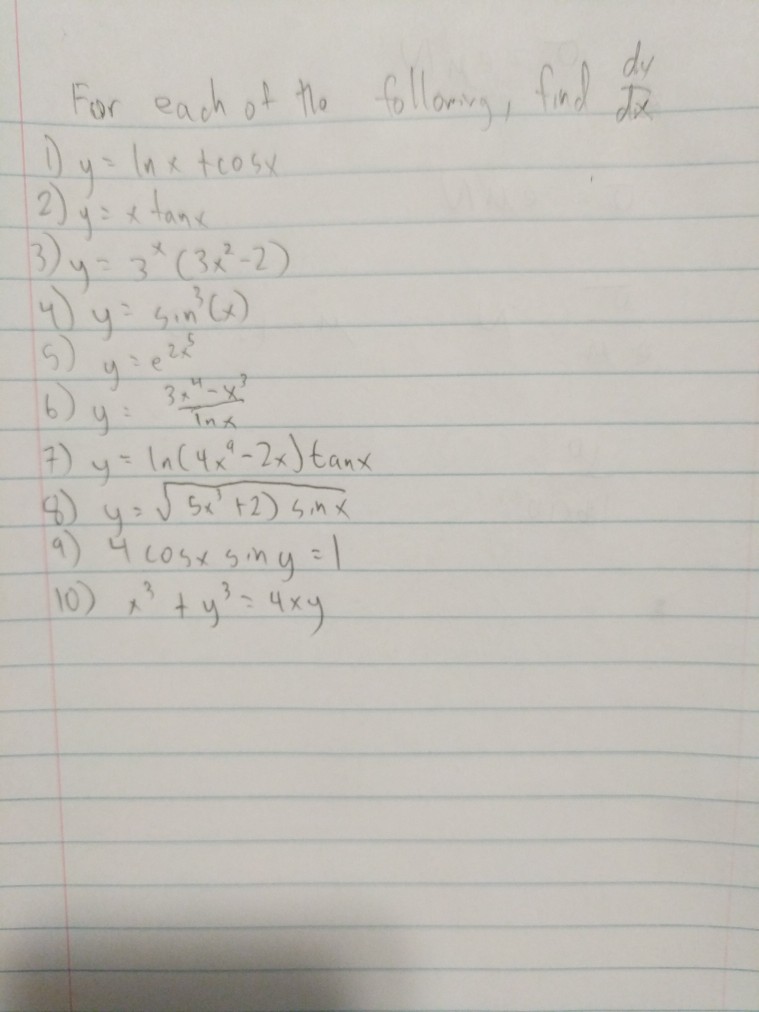 For each of the following, find dy/dx
1) y = ln x + cosx
2) y = x tanx
3) y = 3^x (3x^2 - 2)
4) y = sin^3(x)
5) y = e^{2x^5}
6) y = \frac{3x^4 - x^3}{ln x}
7) y = ln(4x^9 - 2x) tanx
8) y = \sqrt{5x + 2) sin x}
9) 4 cosx sin y = 1
10) x^3 + y^3 = 4xy